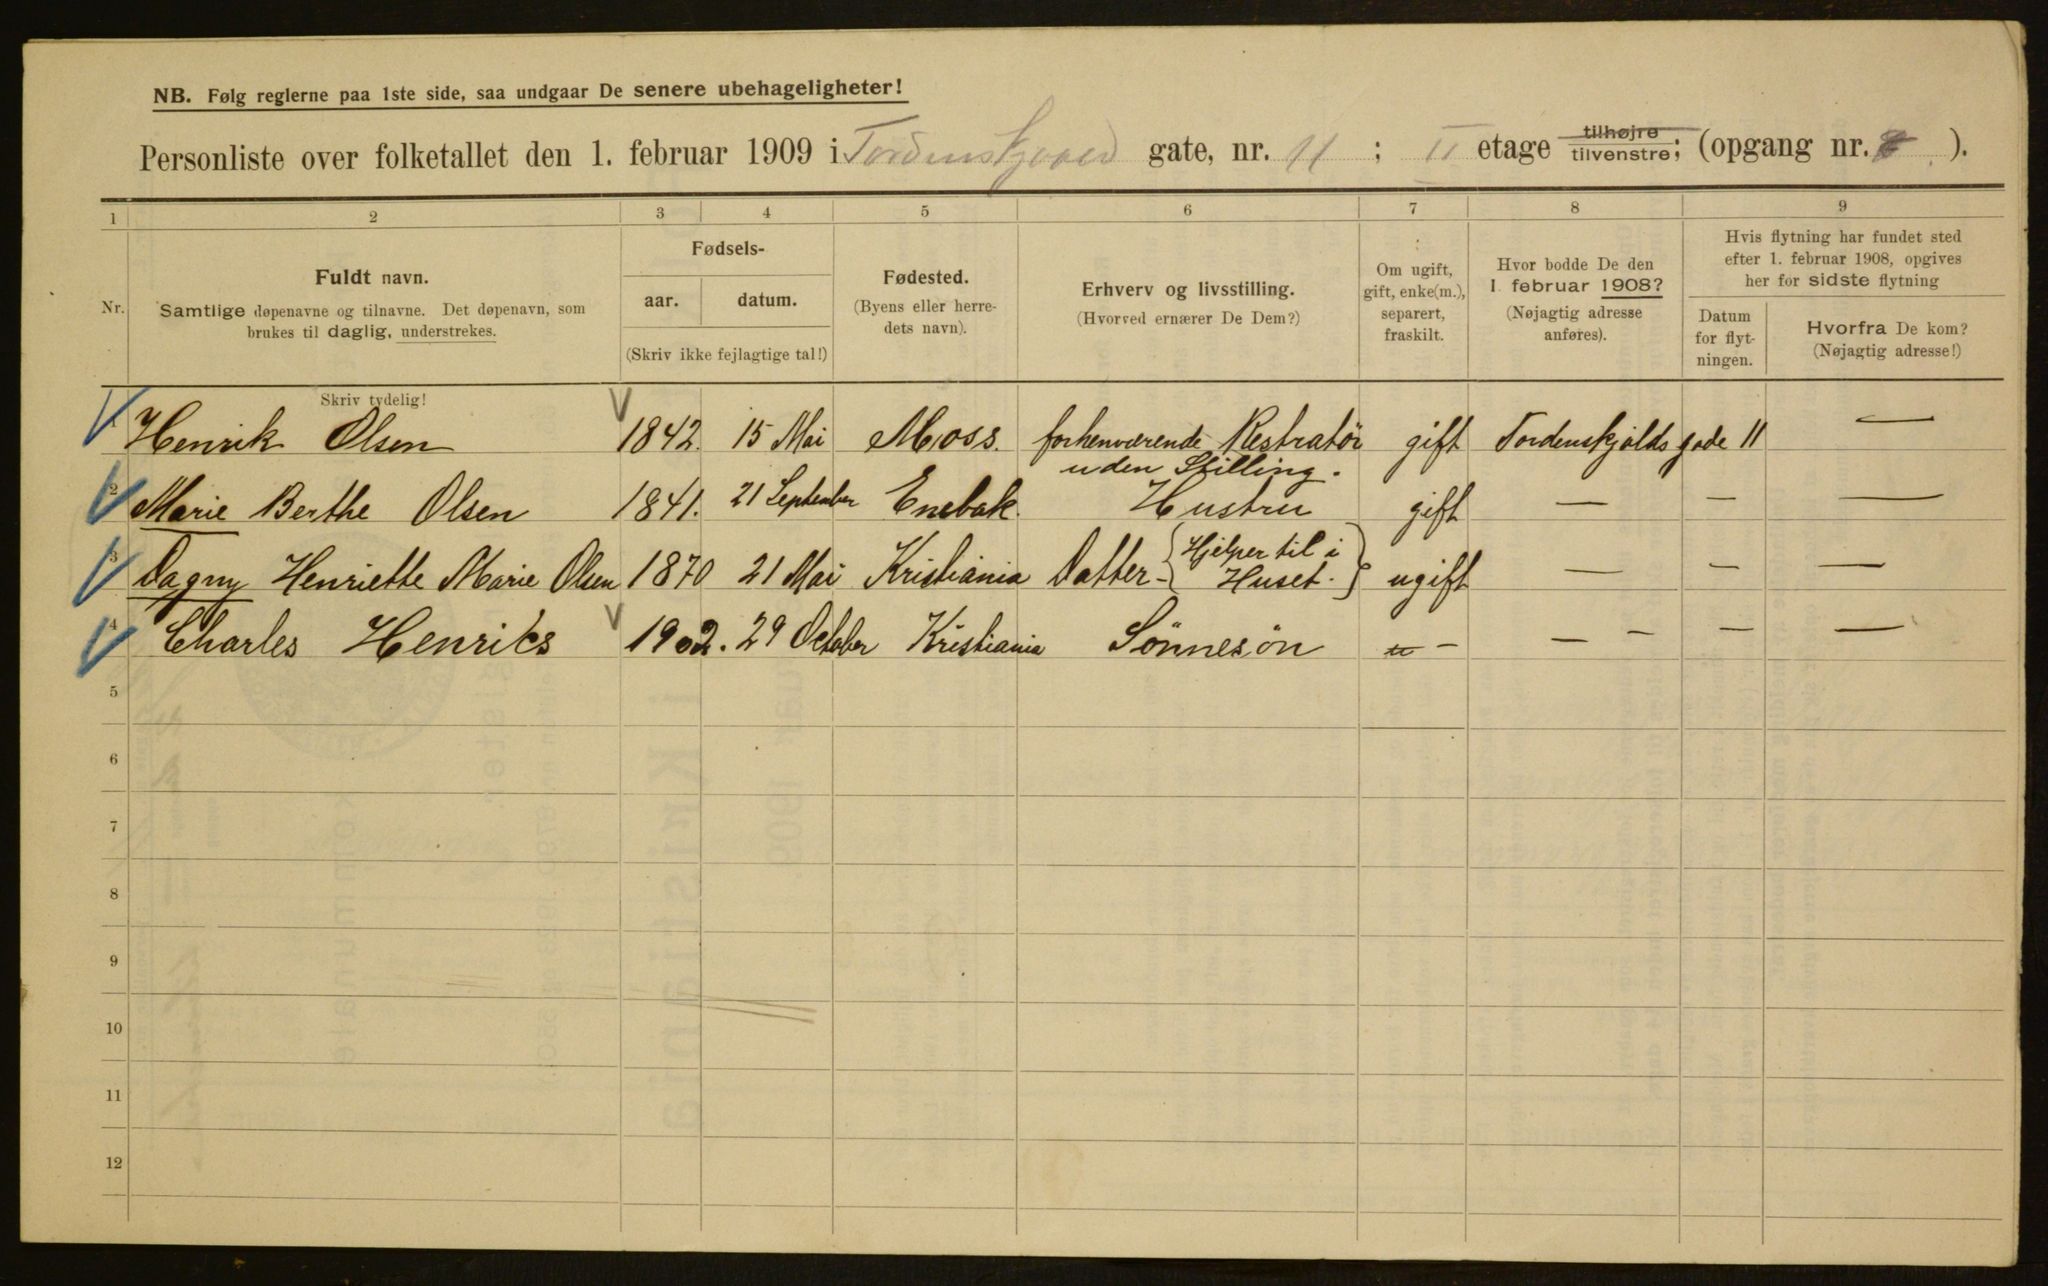 NB. Følg reglerne paa 1ste side, saa undgaar De senere ubehageligheter!
Personliste over folketallet den 1. februar 1909 i Tordenskjold gate, nr. 11 ; II etage tilhøjre tilvenstre; (opgang nr. ).
1 2 3 4 5 6 7 8 9
Nr.
Fuldt navn.
Samtlige døpenavne og tilnavne. Det døpenavn, som
brukes til daglig, understrekes.
Skriv tydelig!
Fødsels-
aar. datum.
(Skriv ikke fejlagtige tal!)
Fødested.
(Byens eller herre-
dets navn).
Erhverv og livsstilling.
(Hvorved ernærer De Dem?)
Om ugift,
gift, enke(m.),
separert,
fraskilt.
Hvor bodde De den
1. februar 1908?
(Nøjagtig adresse
anføres).
Hvis flytning har fundet sted
efter 1. februar 1908, opgives
her for sidste flytning
Datum
for flyt-
ningen.
Hvorfra De kom?
(Nøjagtig adresse!)
Henrik Olsen 1842. 15 Mai Moss. forhenværende Restratør gift Tordenskjolds gade 11 —
uden Stilling.
2 Marie Berthe Olsen 1841. 21 September Enebak. Hustru gift — — —
3 Dagny Henriette Marie Olsen 1870 21 Mai Kristiania Datter - {Hjelper til i Huset.} ugift — — —
4 Charles Henriks 1902. 29 October Kristiania Sönnesön u - — — — —
5
6
7
8
9
10
11
12